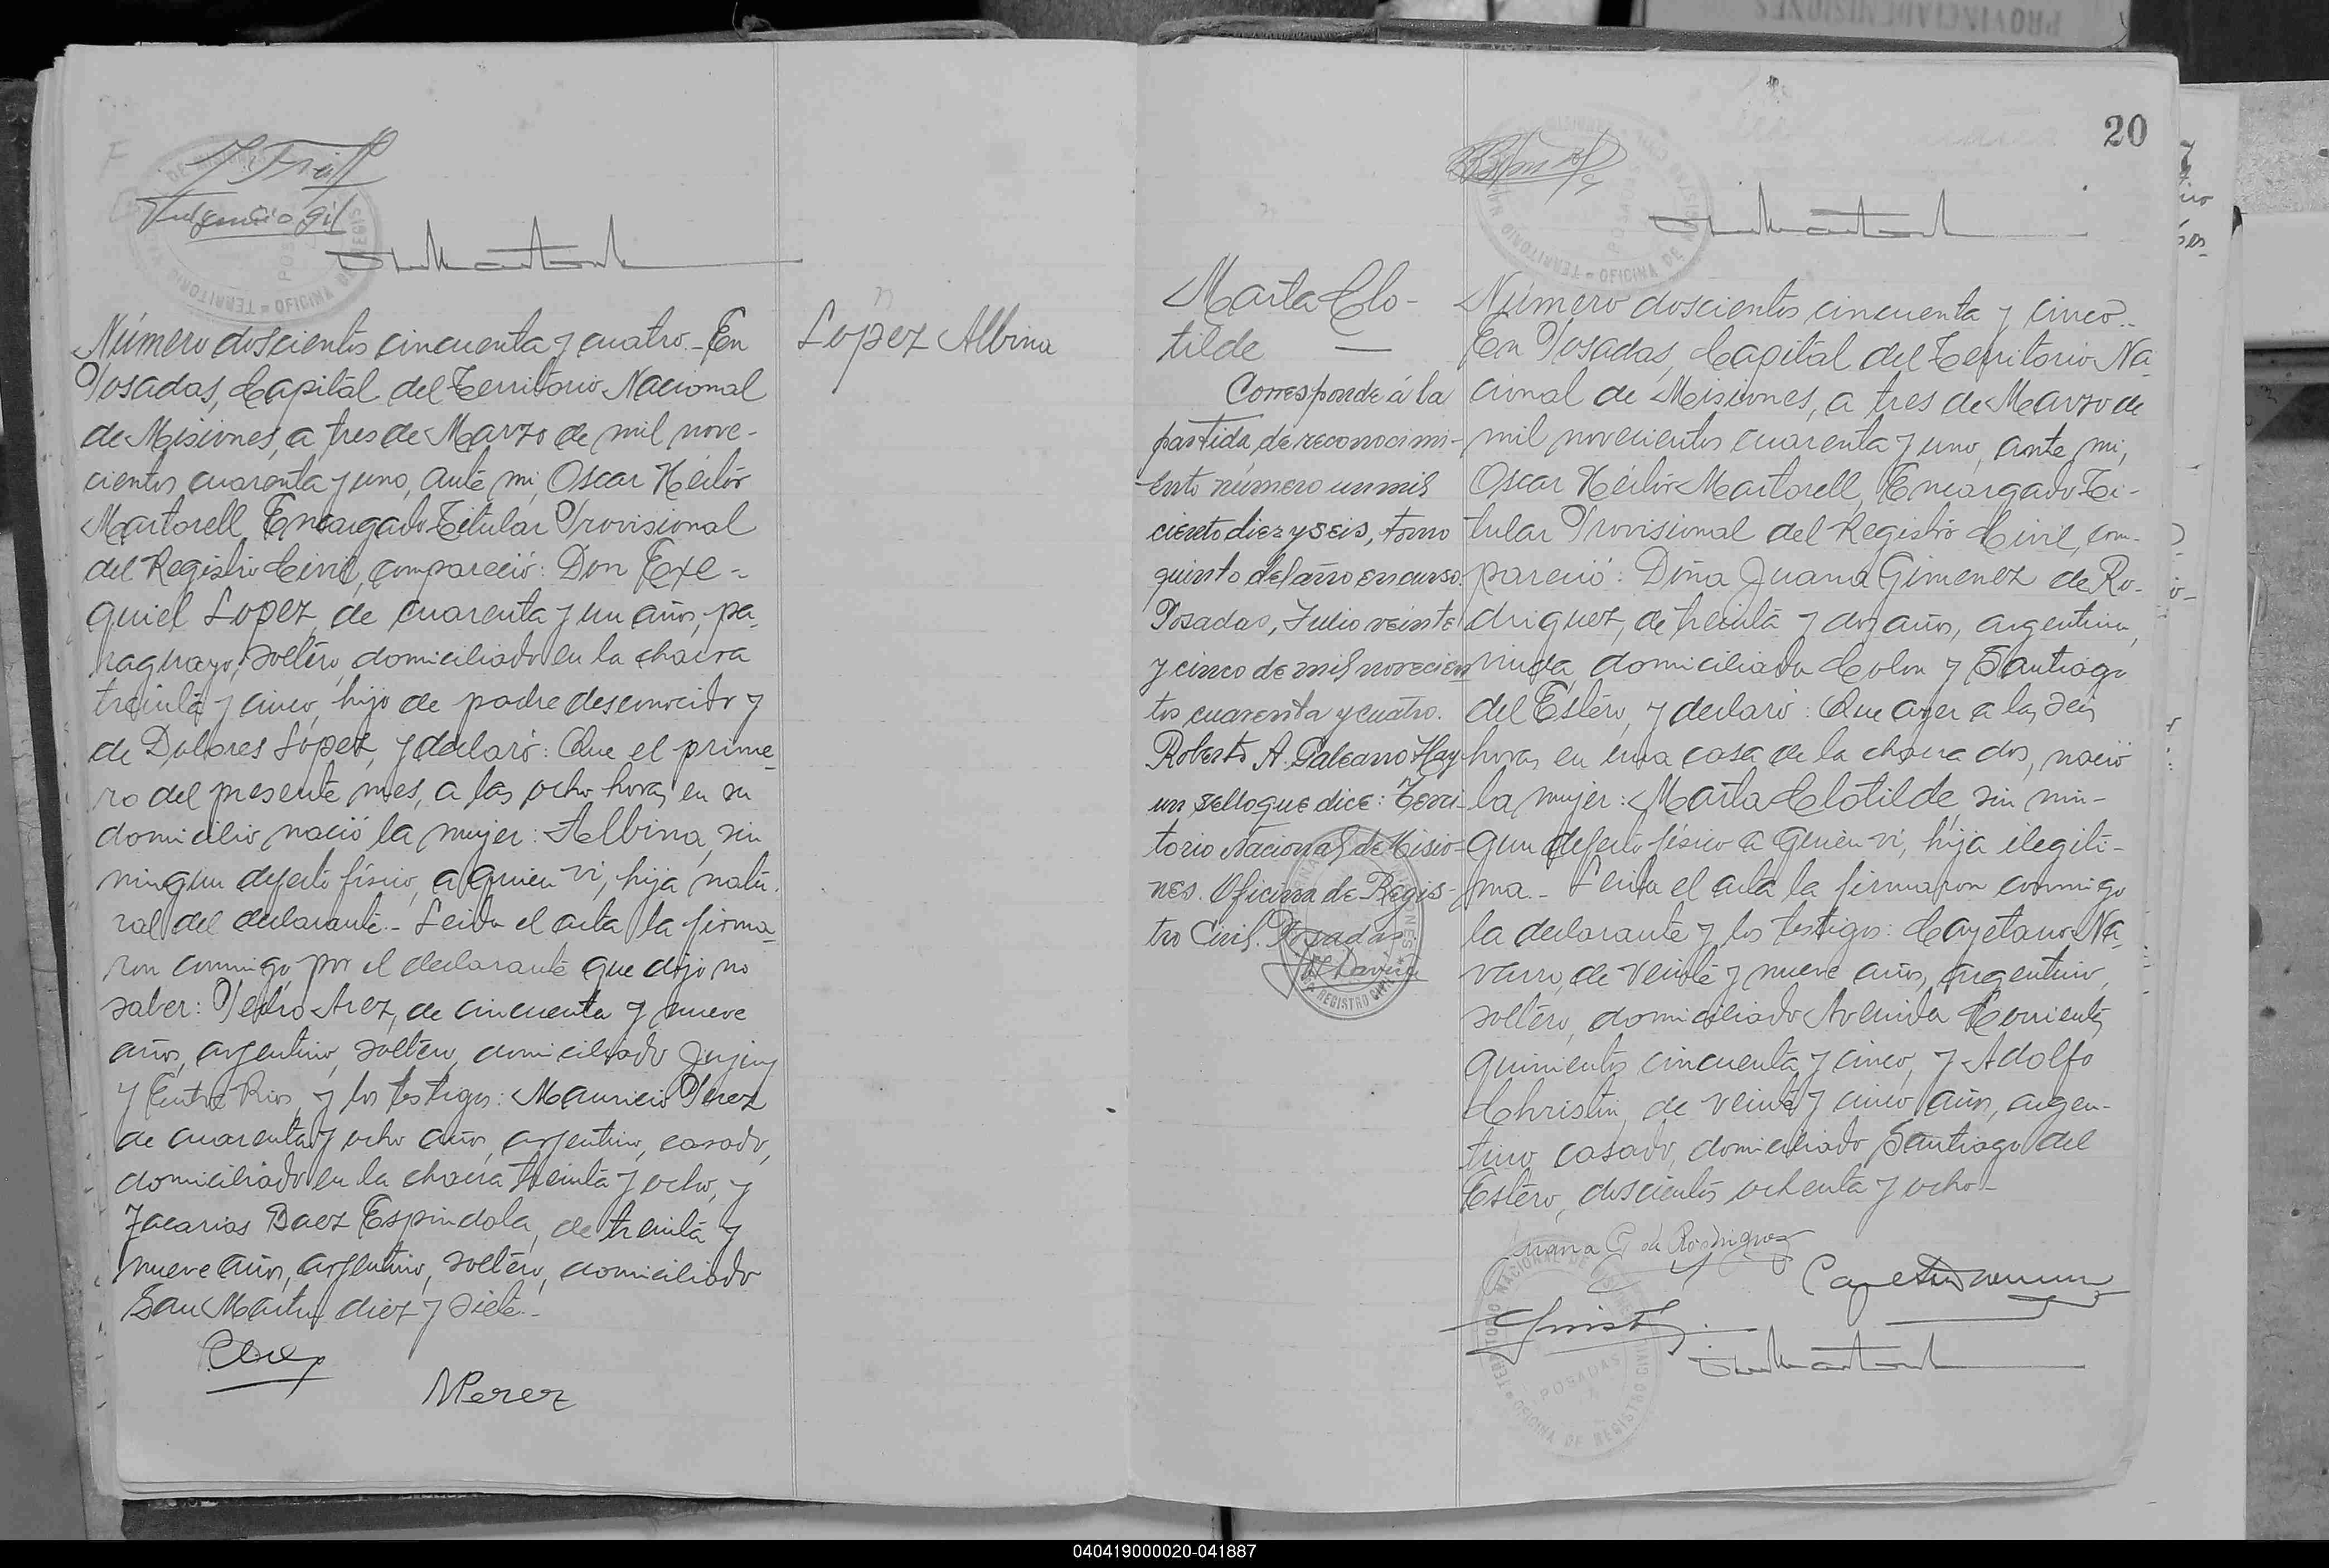 PROVINCIA DE MISIONES
20
Fulgencio Gil
Lopez Albina
Número doscientos cincuenta y cuatro.- En
Posadas, Capital del Territorio Nacional
de Misiones, a tres de Marzo de mil nove-
cientos cuarenta y uno, ante mi, Oscar Héctor
Martorell Encargado Titular Provisional
del Registro Civil, compareció: Don Exe-
quiel Lopez, de cuarenta y un años, pa-
raguayo, soltero, domiciliado en la chacra
treinta y cinco, hijo de padre desconocido y
de Dolores López, y declaró: Que el prime-
ro del presente mes, a las ocho horas en su
domicilio nació la mujer: Albina, sin
ningun defecto físico, a quien vi, hija natu-
ral del declarante.- Leida el acta la firma-
ron conmigo, por el declarante que dijo no
saber: Pedro Arez, de cincuenta y nueve
años, argentino, soltero, domiciliado Jujuy
y Entre Rios, y los testigos: Mauricio Perez
de cuarenta y ocho años, argentino, casado,
domiciliado en la chacra treinta y ocho, y
Zacarias Baez Espindola, de treinta y
nueve años, argentino, soltero, domiciliado
San Martin diez y siete.-
MPerez
Marta Clo-
tilde —
Corresponde á la
partida de reconocimi-
ento número un mil
ciento diez y seis, tomo
quinto del año en curso.
Posadas, Julio veinte
y cinco de mil novecien
tos cuarenta y cuatro.
Roberto A. Galeano Hay
un sello que dice: Terri-
torio Nacional de Misio-
nes. Oficina de Regis-
tro Civil. Posadas.
Número doscientos cincuenta y cinco.-
En Posadas, Capital del Territorio Na-
cional de Misiones, a tres de Marzo de
mil novecientos cuarenta y uno, ante mi,
Oscar Héctor Martorell, Encargado Ti-
tular Provisional del Registro Civil, com-
pareció: Doña Juana Gimenez de Ro-
driguez, de treinta y dos años, argentina,
viuda, domiciliada Colon y Santiago
del Estero, y declaró: Que ayer a las seis
horas en una casa de la chacra dos, nació
la mujer: Marta Clotilde, sin nin-
gun defecto físico a quien vi, hija ilegiti-
ma.- Leida el acta la firmaron conmigo
la declarante y los testigos: Cayetano Na-
varro, de veinte y nueve años, argentino,
soltero, domiciliado Avenida Corrientes
quinientos cincuenta y cinco, y Adolfo
Christin, de veinte y cinco años, argen-
tino casado, domiciliado Santiago del
Estero, doscientos ochenta y ocho.-
Juana G de Rodriguez
TERRITORIO NACIONAL DE MISIONES
POSADAS
OFICINA DE REGISTRO CIVIL
040419000020-041887